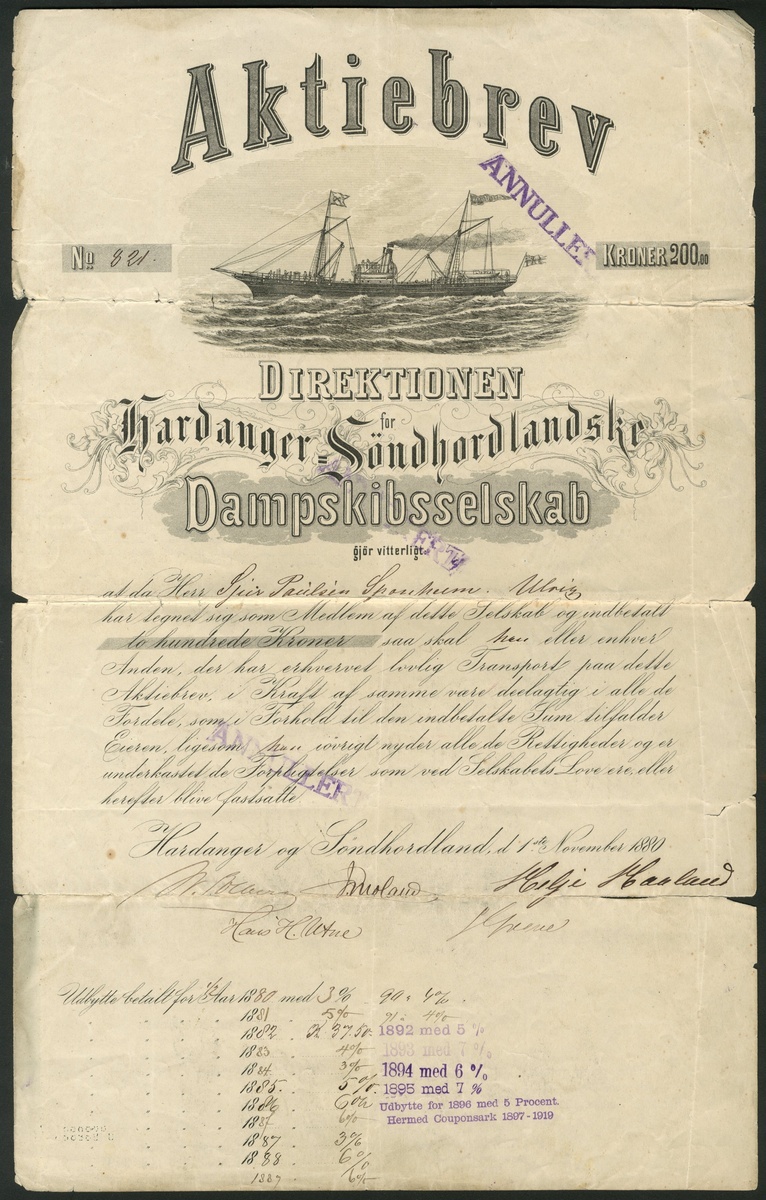 Aktiebrev
ANNULLERT
No 821.
KRONER 200.00
DIREKTIONEN
for
Hardanger=Söndhordlandske
Dampskibsselskab
gjör vitterligt
at da Herr Sjur Paulsen Sponheim. Ulvik
har tegnet sig som Medlem af dette Selskab og indbetalt
to hundrede Kroner saa skal han eller enhver
Anden, der har erhvervet lovlig Transport paa dette
Aktiebrev, i Kraft af samme være deelagtig i alle de
Fordele, som i Forhold til den indbetalte Sum tilfalder
Eieren, ligesom han iövrigt nyder alle de Rettigheder og er
underkastet de Forpligtelser som ved Selskabets Love ere, eller
herefter blive fastsatte
ANNULLERT
Hardanger og Söndhordland, d 1ste November 1880.
Helje Haaland
Hans H. Utne
Udbytte betalt for 1/2 Aar 1880 med 3% 90: 4%.
1881 5% 91: 4%
1882 K 37.50. 1892 med 5 %
1883 4% 1893 med 7 %
1884. 3% 1894 med 6 %
1885. 5% 1895 med 7 %
1886 6% Udbytte for 1896 med 5 Procent.
6% Hermed Couponsark 1897-1919
1887 3%
1888 6%
1889 6%